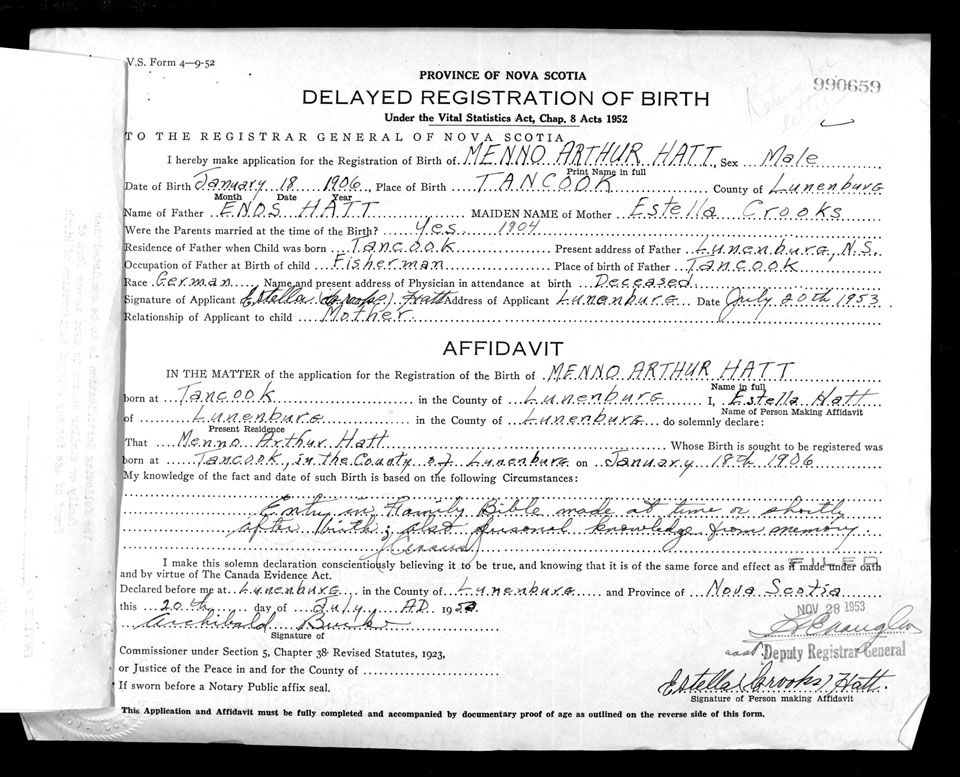 V.S. Form 4—9-52
PROVINCE OF NOVA SCOTIA
990659
DELAYED REGISTRATION OF BIRTH
Under the Vital Statistics Act, Chap. 8 Acts 1952
TO THE REGISTRAR GENERAL OF NOVA SCOTIA
I hereby make application for the Registration of Birth of MENNO ARTHUR HATT, Sex Male
Print Name in full
Date of Birth January 18 1906, Place of Birth TANCOOK County of Lunenburg
Month Date Year
Name of Father ENOS HATT MAIDEN NAME of Mother Estella Crooks
Were the Parents married at the time of the Birth? yes. 1904
Residence of Father when Child was born Tancook Present address of Father Lunenburg, N.S.
Occupation of Father at Birth of child Fisherman Place of birth of Father Tancook
Race German Name and present address of Physician in attendance at birth Deceased
Signature of Applicant Estella (Crooks) Hatt Address of Applicant Lunenburg Date July 20th 1953
Relationship of Applicant to child Mother
AFFIDAVIT
IN THE MATTER of the application for the Registration of the Birth of MENNO ARTHUR HATT
Name in full
born at Tancook in the County of Lunenburg I, Estella Hatt
Name of Person Making Affidavit
of Lunenburg in the County of Lunenburg do solemnly declare:
Present Residence
That Menno Arthur Hatt Whose Birth is sought to be registered was
born at Tancook, in the County of Lunenburg on January 18th 1906
My knowledge of the fact and date of such Birth is based on the following Circumstances:
Entry in Family Bible made at time or shortly
after birth; also personal knowledge from memory
(Census)
I make this solemn declaration conscientiously believing it to be true, and knowing that it is of the same force and effect as if made under oath
FILED
and by virtue of The Canada Evidence Act.
Declared before me at Lunenburg in the County of Lunenburg and Province of Nova Scotia
this 20th day of July AD. 1953.
NOV 28 1953
Archibald
Signature of
Deputy Registrar General
Commissioner under Section 5, Chapter 38 Revised Statutes, 1923,
or Justice of the Peace in and for the County of
Estella (Crooks) Hatt.
If sworn before a Notary Public affix seal.
Signature of Person making Affidavit
This Application and Affidavit must be fully completed and accompanied by documentary proof of age as outlined on the reverse side of this form.